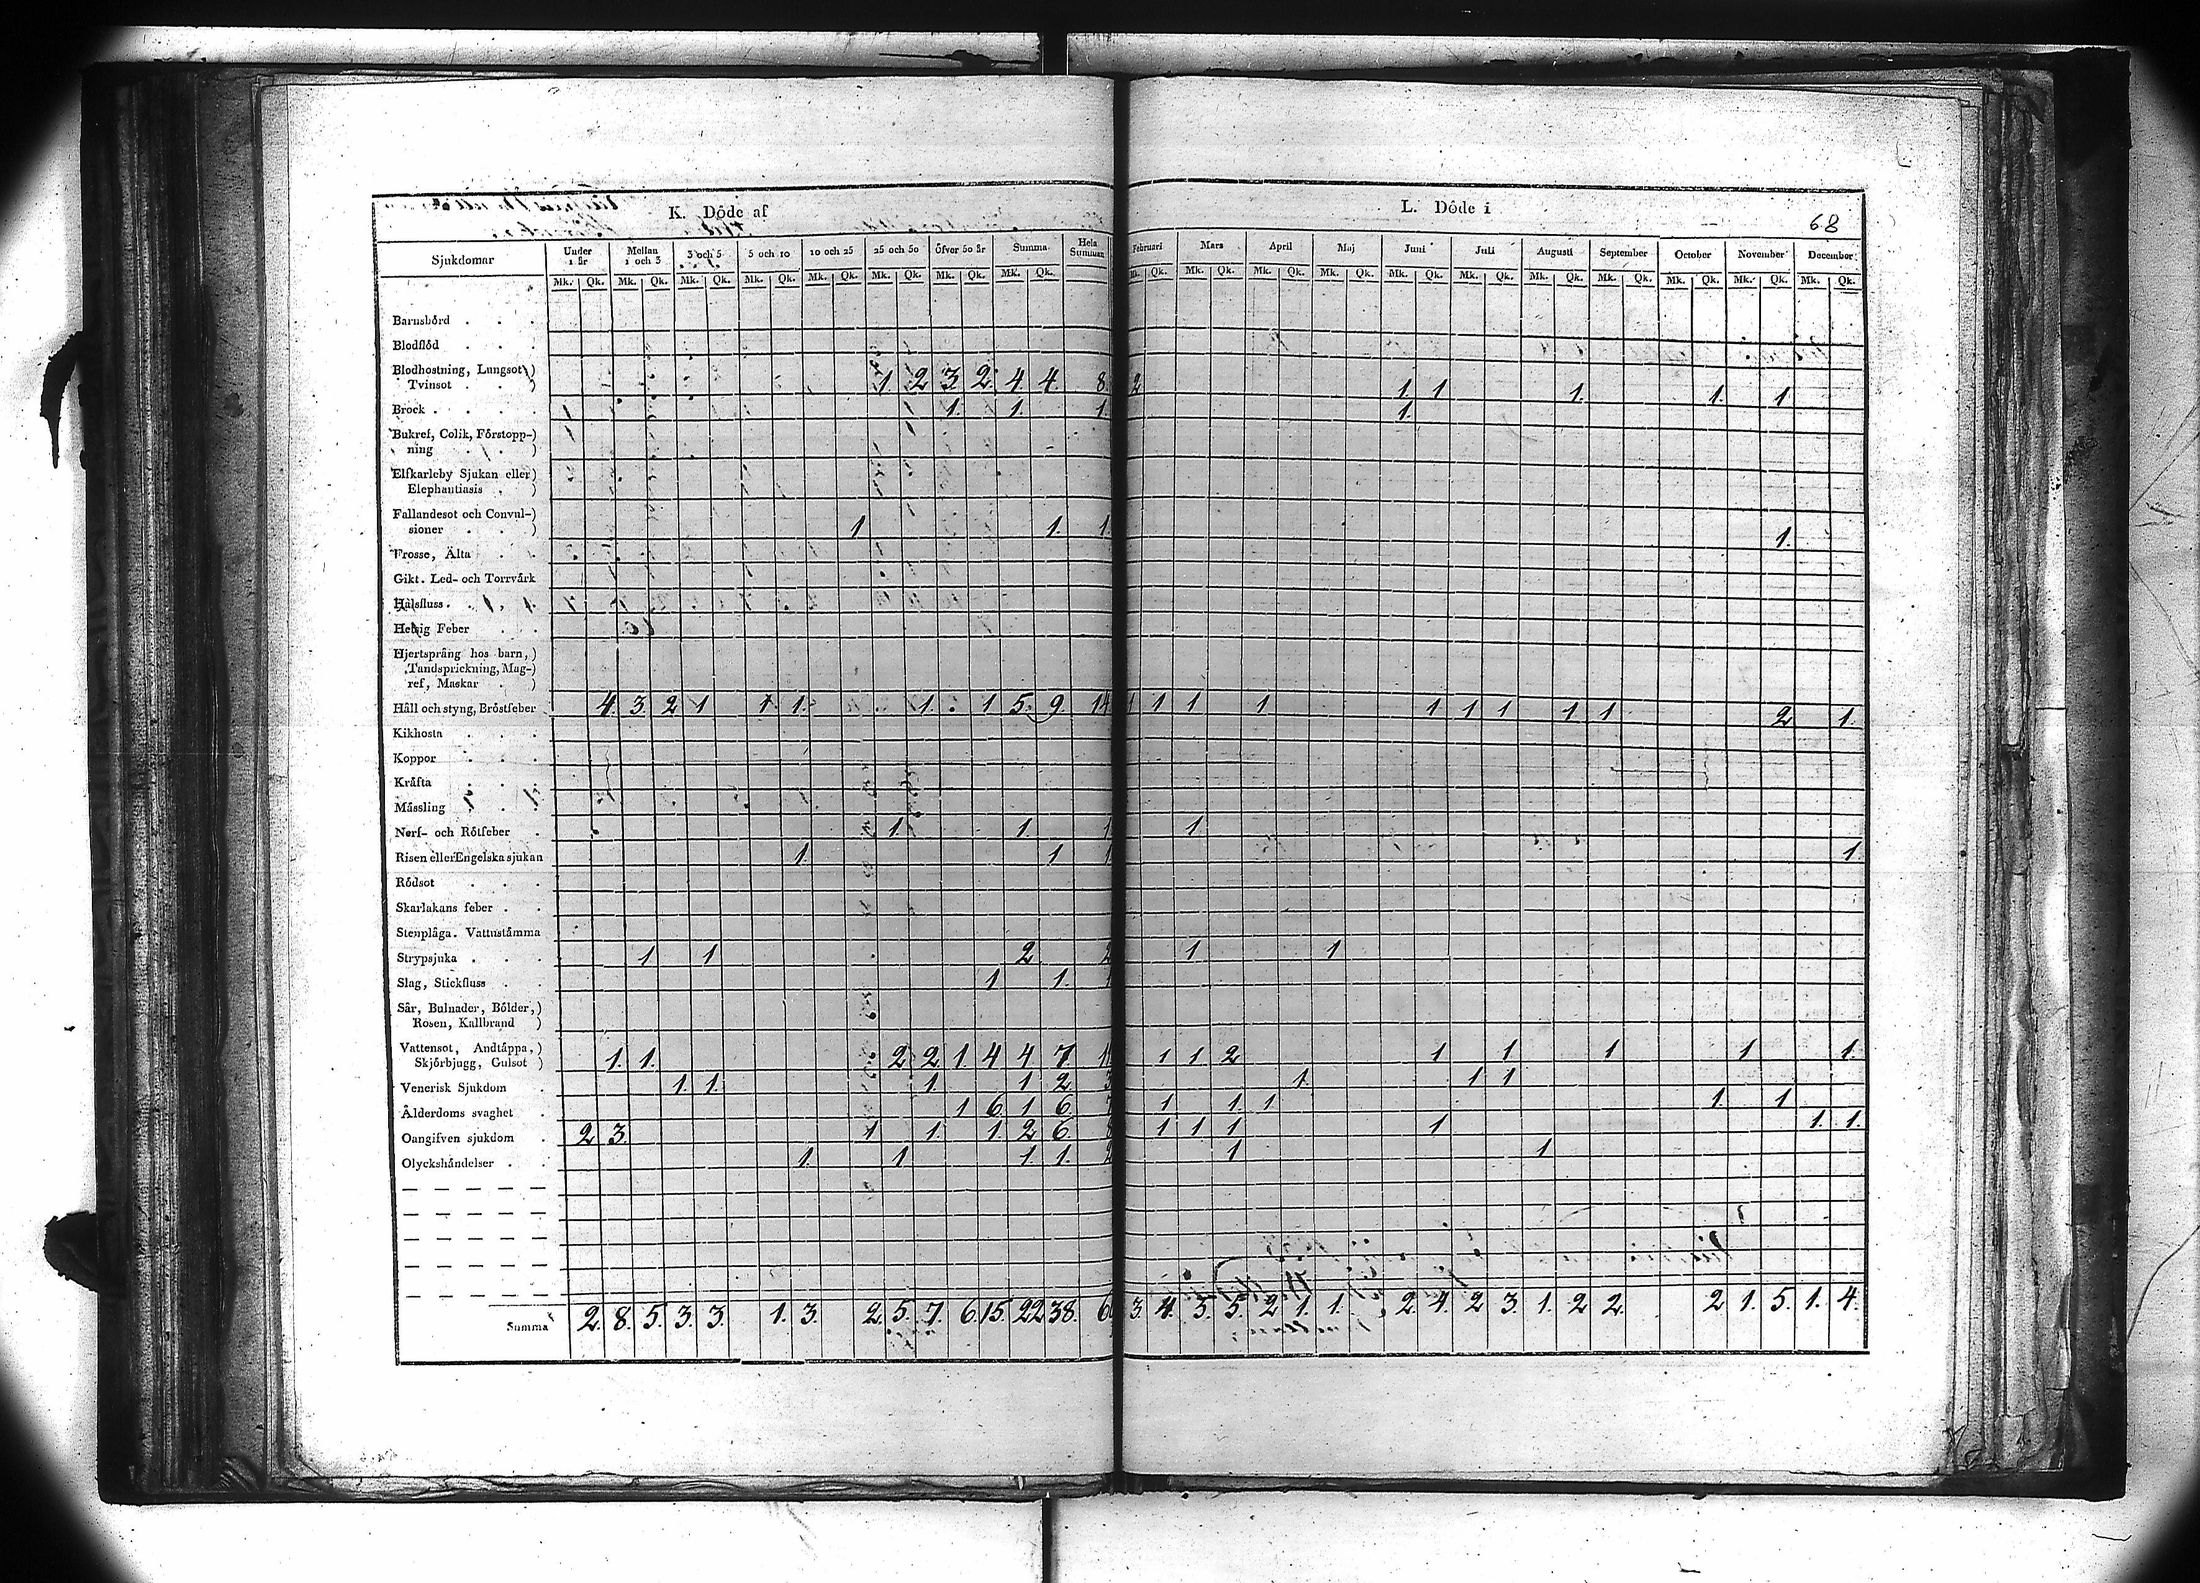 K. Dôde af
L. Dôde i
68
Sjukdomar Under 1 år Mellan 1 och 3 3 och 5 5 och 10 10 och 25 25 och 50 Öfver 50 år Summa Hela Summan Februari Mars April Maj Juni Juli Augusti September October November December
Mk. Qk. Mk. Qk. Mk. Qk. Mk. Qk. Mk. Qk. Mk. Qk. Mk. Qk. Mk. Qk. Mk. Qk. Mk. Qk. Mk. Qk. Mk. Qk. Mk. Qk. Mk. Qk. Mk. Qk. Mk. Qk. Mk. Qk. Mk. Qk. Mk. Qk.
Barnsbörd . . .
Blodflöd . . .
Blodhostning, Lungsot)
Tvinsot . . . ) 1 2 3 2 4 4. 8. 2 1 1 1. 1. 1
Brock . . . . 1. 1. 1. 1.
Bukref, Colik, Förstopp-)
ning . . . )
Elfkarleby Sjukan eller)
Elephantiasis . )
Fallandesot och Convul-)
sioner . . . ) 1 1. 1. 1.
Frosse, Älta . .
Gikt. Led- och Torrvärk
Halsfluss . . .
Hetsig Feber . .
Hjertsprång hos barn,)
Tandsprickning, Mag-)
ref, Maskar . )
Håll och styng, Bröstfeber 4. 3. 2 1 1 1. 1. 1 5. 9. 14 1 1 1 1 1 1 1 1 1 2 1.
Kikhosta . . .
Koppor . . .
Kräfta . . .
Mässling . . .
Nerf- och Rötfeber . 1. 1. 1 1.
Risen eller Engelska sjukan 1. 1 1 1.
Rödsot . . .
Skarlakans feber . .
Stenplåga. Vattnstämma
Strypsjuka . . . 1 1 2 2 1 1
Slag, Stickfluss . . 1 1. 1
Sår, Bulnader, Bölder,)
Rosen, Kallbrand )
Vattensot, Andtäppa,)
Skjörbjugg, Gulsot ) 1. 1. 2 2 1 4 4 7. 1 1 2 1 1 1 1 1.
Venerisk Sjukdom . 1 1. 1. 1 2 3 1. 1 1
Ålderdoms svaghet . 1 6. 1 6. 7 1 1. 1 1. 1
Oangifven sjukdom . 2 3. 1 1. 1. 2 6. 8 1 1 1 1 1. 1.
Olyckshändelser . . 1. 1 1. 1. 2 1 1
Summa 2. 8. 5. 3. 3. 1. 3. 2. 5. 7. 6. 15. 22 38. 6 3. 4. 3. 5. 2 1. 1. 2. 4. 2 3. 1. 2 2. 2 1. 5. 1. 4.